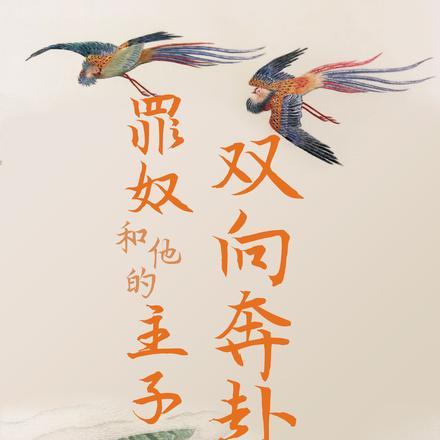 双向奔赴
罪奴和他的主子